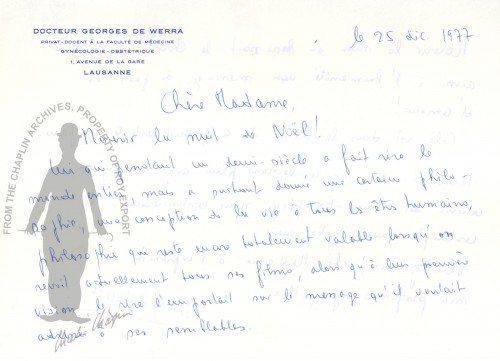 DOCTEUR GEORGES DE WERRA
PRIVAT-DOCENT À LA FACULTÉ DE MÉDECINE
GYNÉCOLOGIE - OBSTÉTRIQUE
1, AVENUE DE LA GARE
LAUSANNE
le 25 déc 1977
Chère Madame,
Mourir la nuit de Noël !
Lui qui pendant un demi-siècle a fait rire le
monde entier, mais a surtout donné une certaine philo-
sophie, une conception de la vie à tous les êtres humains,
philosophie qui reste encore totalement valable lorsqu'on
revoit actuellement tous ses films, alors qu'à leur première
vision, le rire l'emportait sur le message qu'il voulait
à ses semblables.
FROM THE CHAPLIN ARCHIVES, PROPERTY OF ROY EXPORT
Charlie Chaplin